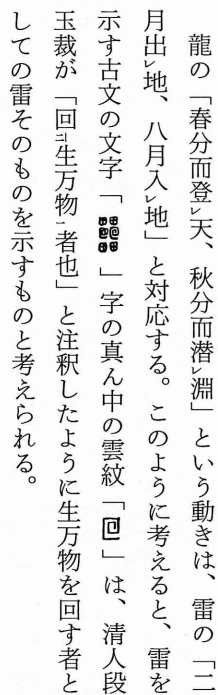 龍の「春分而登レ天、秋分而潜レ淵」という動きは、雷の「二
月出レ地、八月入レ地」と対応する。このように考えると、雷を
示す古文の文字「」字の真ん中の雲紋「」は、清人段
玉裁が「回二生万物一者也」と注釈したように生万物を回す者と
しての雷そのものを示すものと考えられる。